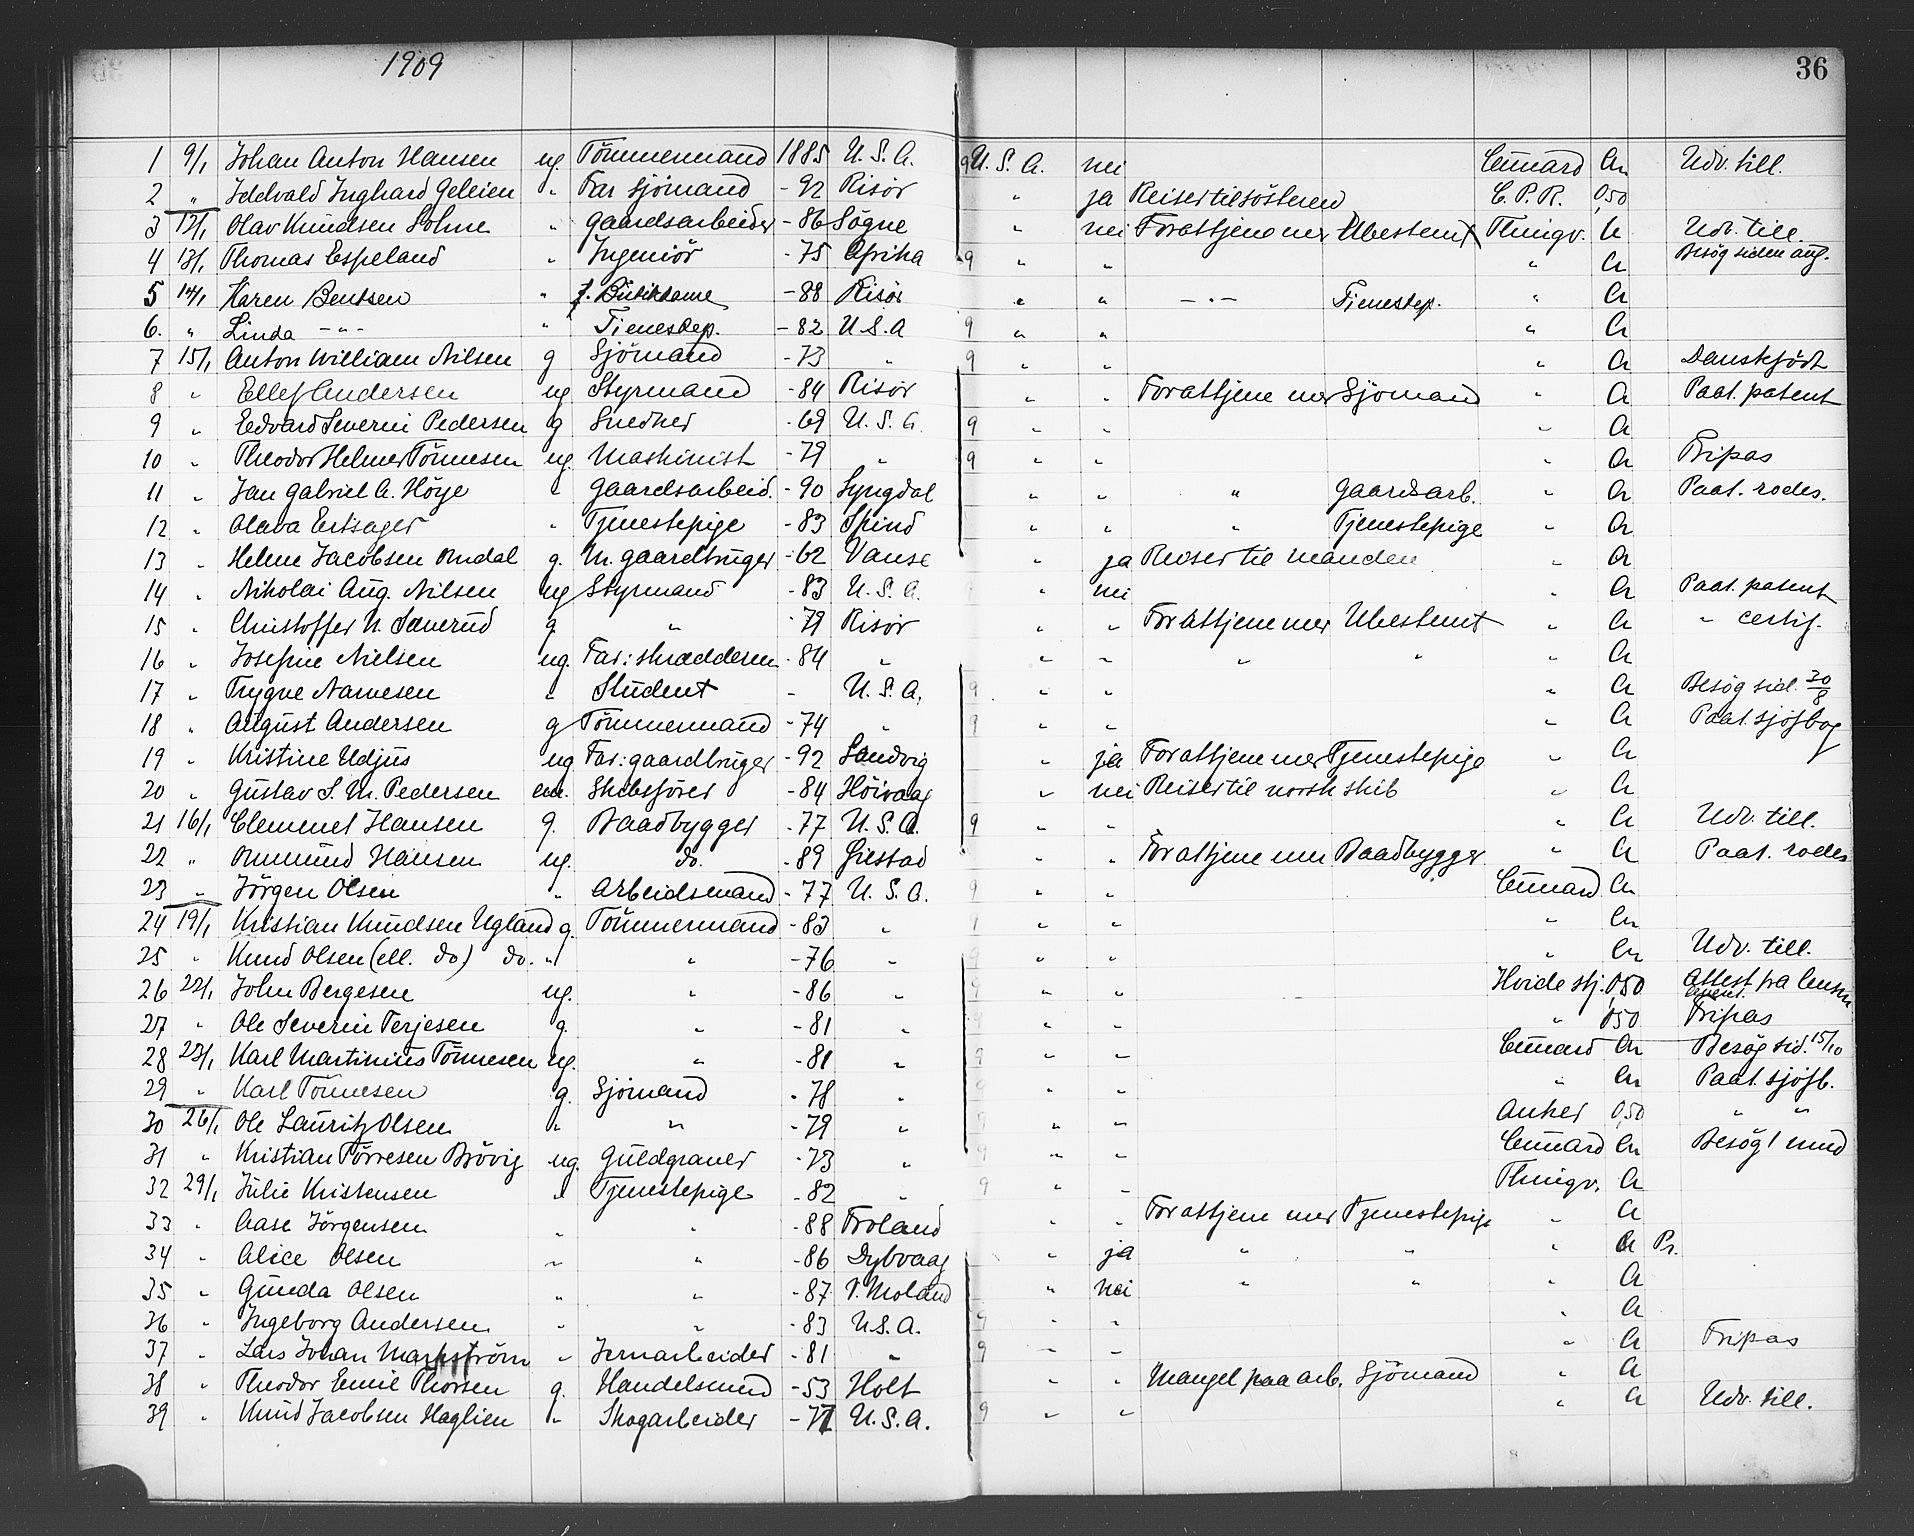 1909
36
1 9/1 Johan Anton Hansen ug. Tömmermand 1885 U.S.A. 9 U.S.A. nei Cunard Cn Udv. till.
2 " Inghard " Far sjömand - 92 Risör " ja Reiser til söstered C.P.R. 0,50
3 12/1 Olav Knudsen Solme " Gaardsarbeider - 86 Sögne " nei For at tjene mer Ubestemt Thingv. Udv. till.
4 13/1 Thomas Espeland " Ingeniör - 75 Afrika 9 " " " Cr Besög siden aug.
5 14/1 Karen Bentsen " f. Butikdame - 88 Risör " " -"- Tienestep. " Cr
6. " Linda -"- " Tienestep. - 82 U.S.A 9 " " " Cr
7 15/1 Anton William Nilsen g Sjömand - 73 " 9 " " " Cr Danskfödt
8 " Ellef Andersen ug Styrmand - 84 Risör " " For at tjene mer Sjömand " Cr Paat. patent
9 " Edvard Severin Pedersen g Snedker - 69 U.S.A. 9 " " " Cr
10 " Theodor Helmer Tönnesen ug. Maskinist - 79 " 9 " " " Cr Fripas
11 " Jan Gabriel A. Höye " Gaardsarbeid. - 90 Lyngdal " " " Gaardsarb. " Cr Paat. rodes.
12 " Olava Ertsager " Tjenestepige - 83 Spind " " " Tjenestepige " Cr
13 " Helene Jacobsen Omdal g. M. gaardbruger - 62 Vanse " ja Reiser til manden " Cr
14 " Nikolai Aug. Nilsen ug Styrmand - 83 U.S.A. 9 " nei " Cr Paat. patent
15 " Christoffer N. g. " - 79 Risör " " For at tjene mer Ubestemt " Cr " certif.
16 " Josefine Nielsen ug. Far: skrædderen - 84 " " " " " " Cr
17 " Trygve Narvesen " Student - U.S.A. 9 " " " Cr Besög sid. 30/8
18 " August Andersen g Tömmermand - 74 " 9 " " " Cr Paat. sjöfbog
19 " Kristine Udjus ug Far: gaardbruger - 92 Landvig " ja For at tjene mer Tjenestepige " Cr
20 " Gustav S. M. Pedersen em. Skibsförer - 84 Höivaag " nei Reiser til norsk skib " Cr
21 16/1 Clement Hansen g. Baadbygger - 77 U.S.A. 9 " " " Cr Udv. till.
22 " Omund Hansen ug. do. - 89 Öiestad " " For at tjene mer Baadbygger " Cr Paat. rodes
23 " Jörgen Olsen " Arbeidsmand - 77 U.S.A. 9 " " Cunard Cn
24 19/1 Kristian Knudsen Ugland g. Tömmermand - 83 " 9 " " " Cn
25 " Knud Olsen (ell. do) do. " " - 76 " 9 " " " Cn Udv. till.
26 22/1 John Bergesen ug. " - 86 " 9 " " Hvide stj. 0,50 Attest fra
27 " Ole Severin Terjesen g. " - 81 " 9 " " " 0,50 Fripas
28 23/1 Karl Martinius Tönnesen ug. " - 81 " 9 " " Cunard Cn Besög sid. 15/10
29 " Karl Tönnesen g. Sjömand - 78 " 9 " " " Cn Paat. sjöfb.
30 26/1 Ole Lauritz Olsen " " - 79 " 9 " " Anker 0,50 " "
31 " Kristian Törresen Brövig ug. Guldgraver - 73 " 9 " " Cunard Cn Besög
32 29/1 Julie Kristensen " Tjenestepige - 82 " 9 " " Thingv. Cr
33 " Aase Jörgensen " " - 88 Froland " " For at tjene mer Tjenestepige " Cr
34 " Alice Olsen " " - 86 Dybvaag " ja " " " Cr Pr.
35 " Gunda Olsen " " - 87 V. Moland " nei " " " Cr
36 " Ingeborg Andersen " " - 83 U.S.A. 9 " " " Cr
37 " Lars Johan Markström " Jernarbeider - 81 " 9 " " " Cr Fripas
38 " Theodor Emil Thorsen g. Handelsmand - 53 Holt " " Mangel paa arb. Sjömand " Cr
39 " Knud Jacobsen Haglien " Skogarbeider - 77 U.S.A. 9 " " " Cr Udv. till.